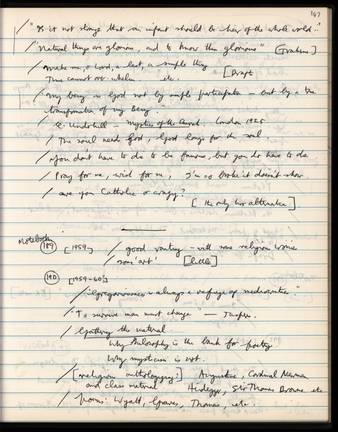 147
/ "Is it not strange that an infant should be heir of the whole world."
/ "Natural things are glorious, and to know them glorious" [Traherne]
/ make me, o Lord, a last, a simple thing
Time cannot overwhelm etc. [Draft
/ My being is God not by simple participation – but by a true
transformation of my Being.
E. Underhill – Mystics of the Church. London 1925
/ The soul needs God, God longs for the soul
/ You don't have to die to be famous, but you do have to die.
/ Pray for me, wind for me,
/ are you Catholic or crazy?
[the only two alternatives]
Notebook
189 [1959] / good writing – will
[ ]
190 [1959-60]
/ "Gorgeousness is always a refuge of mediocrities"
/ "To survive man must change" — Jaspers.
/ Gathering the material
Why Philosophy is the bank for poetry
Why mysticism is not.
/ [religious anthologizing] Augustine, Cardinal Newman
and class material Heidegger, Sir Thomas Browne etc
/ Poems: Wyatt, Graves, Thomas, etc.